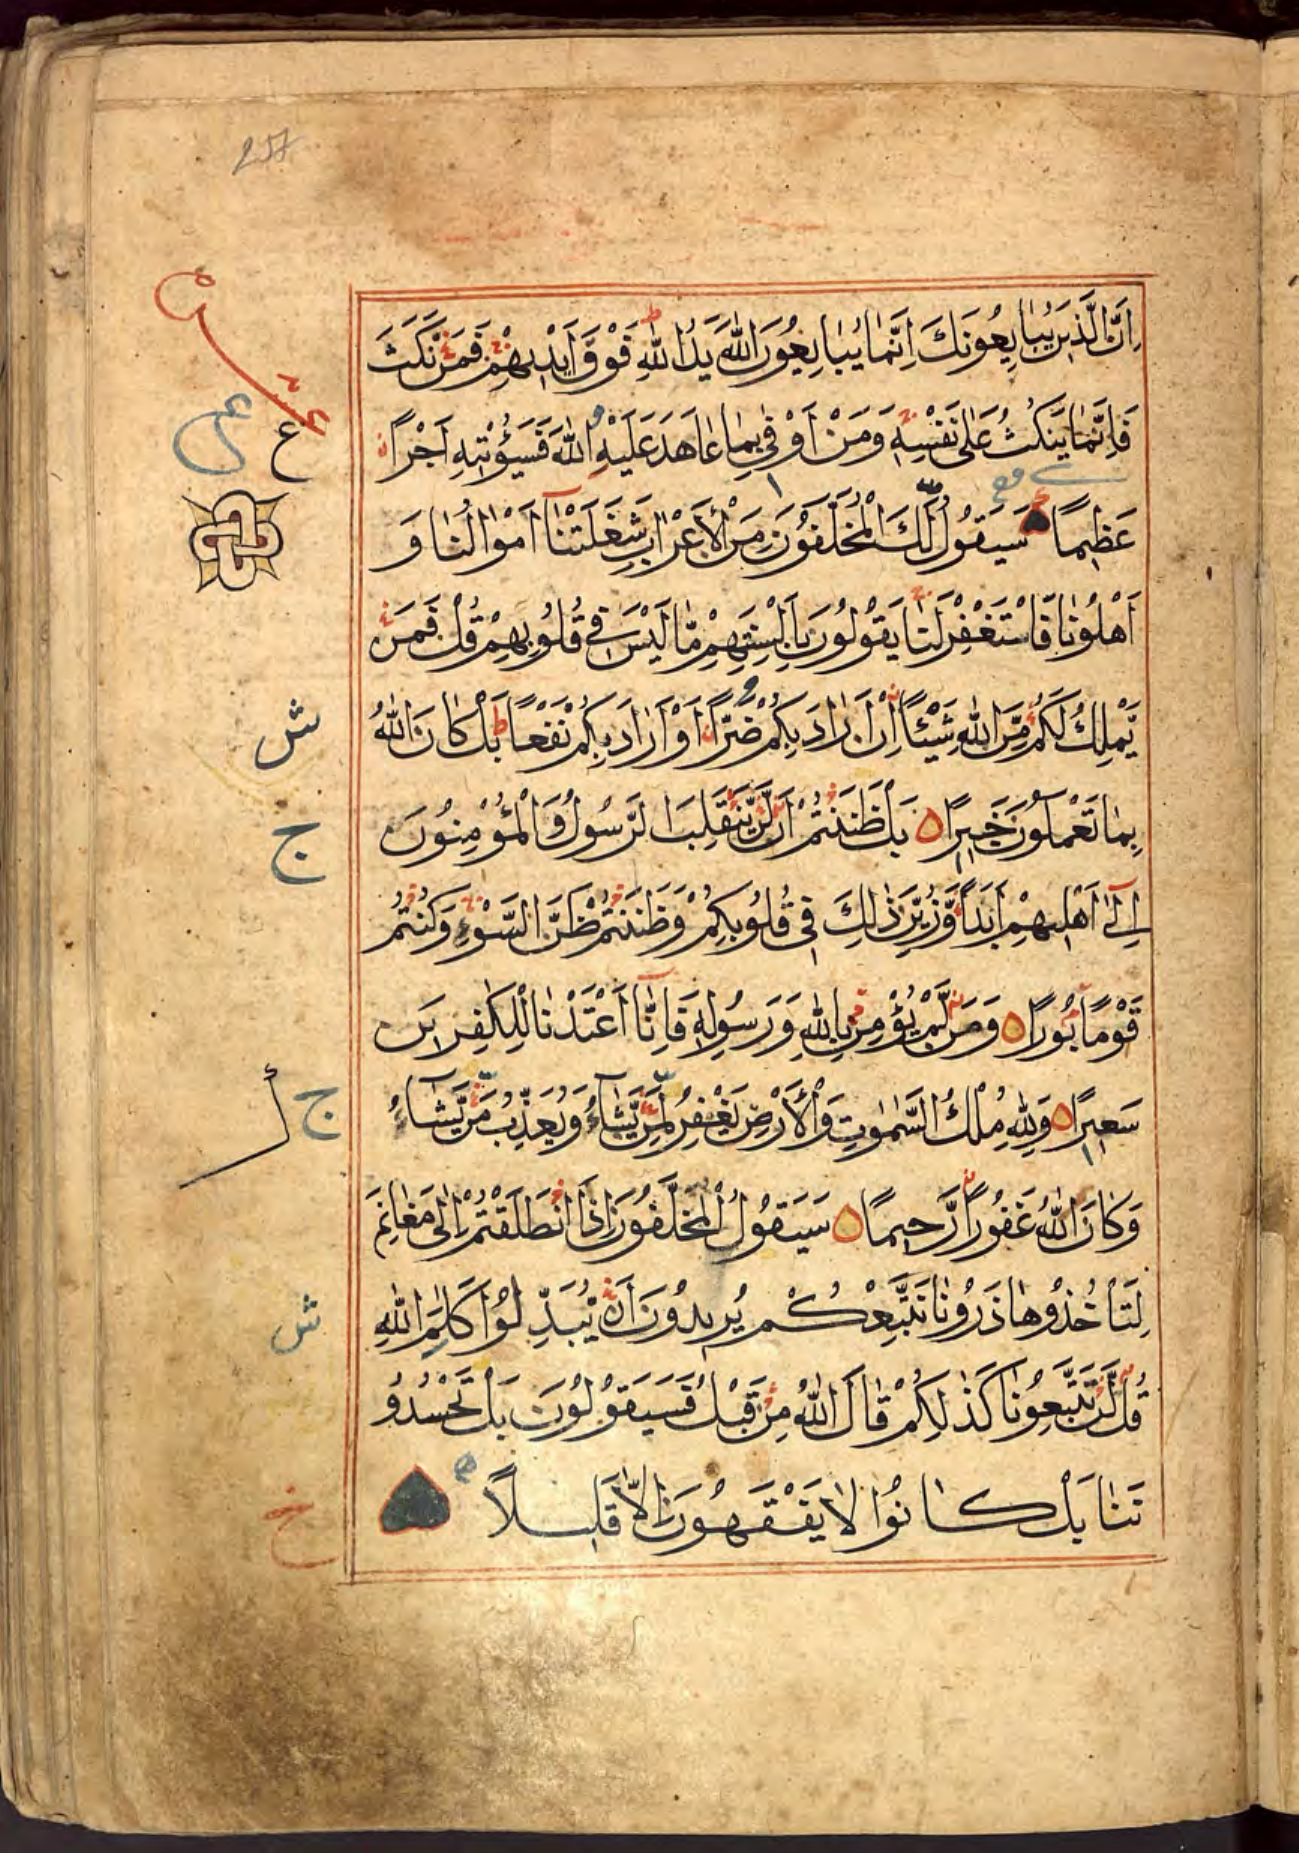 اِنَّ الَّذِينَ يُبَايِعُونَكَ اِنَّمَا يُبَايِعُونَ اللّٰهَ يَدُ اللّٰهِ فَوْقَ اَيْدِيهِمْ فَمَنْ نَّكَثَ
فَاِنَّمَا يَنْكُثُ عَلٰى نَفْسِهِ وَمَنْ اَوْفٰى بِمَا عَاهَدَ عَلَيْهِ اللّٰهَ فَسَيُؤْتِيهِ اَجْرًا
عَظِيمًا سَيَقُولُ لَكَ الْمُخَلَّفُونَ مِنَ الْاَعْرَابِ شَغَلَتْنَا اَمْوَالُنَا وَ
اَهْلُونَا فَاسْتَغْفِرْ لَنَا يَقُولُونَ بِاَلْسِنَتِهِمْ مَّا لَيْسَ فِى قُلُوبِهِمْ قُلْ فَمَنْ
يَّمْلِكُ لَكُمْ مِّنَ اللّٰهِ شَيْئًا اِنْ اَرَادَ بِكُمْ ضَرًّا اَوْ اَرَادَ بِكُمْ نَفْعًا بَلْ كَانَ اللّٰهُ
بِمَا تَعْمَلُونَ خَبِيرًا بَلْ ظَنَنْتُمْ اَنْ لَّنْ يَّنْقَلِبَ الرَّسُولُ وَالْمُؤْمِنُونَ
اِلٰى اَهْلِيهِمْ اَبَدًا وَّزُيِّنَ ذٰلِكَ فِى قُلُوبِكُمْ وَظَنَنْتُمْ ظَنَّ السَّوْءِ وَكُنْتُمْ
قَوْمًا بُورًا وَمَنْ لَّمْ يُؤْمِنْ بِاللّٰهِ وَرَسُولِهِ فَاِنَّا اَعْتَدْنَا لِلْكٰفِرِينَ
سَعِيرًا وَلِلّٰهِ مُلْكُ السَّمٰوٰتِ وَالْاَرْضِ يَغْفِرُ لِمَنْ يَّشَاءُ وَيُعَذِّبُ مَنْ يَّشَاءُ
وَكَانَ اللّٰهُ غَفُورًا رَّحِيمًا سَيَقُولُ الْمُخَلَّفُونَ اِذَا انْطَلَقْتُمْ اِلٰى مَغَانِمَ
لِتَاْخُذُوهَا ذَرُونَا نَتَّبِعْكُمْ يُرِيدُونَ اَنْ يُّبَدِّلُوا كَلٰمَ اللّٰهِ
قُلْ لَّنْ تَتَّبِعُونَا كَذٰلِكُمْ قَالَ اللّٰهُ مِنْ قَبْلُ فَسَيَقُولُونَ بَلْ تَحْسُدُو
نَنَا بَلْ كَانُوا لَا يَفْقَهُونَ اِلَّا قَلِيلًا
ع
ش
ج
ج
ش
خ